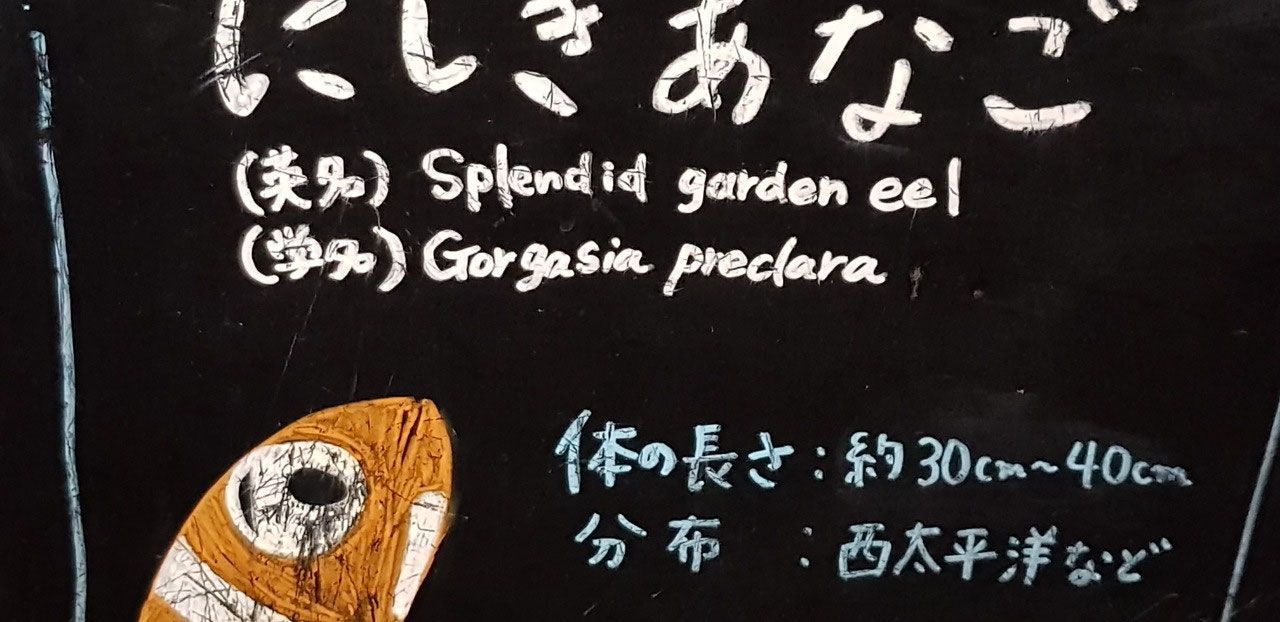 にしきあなご
(英名) Splendid garden eel
(学名) Gorgasia preclara
体の長さ：約30cm～40cm
分布：西太平洋など